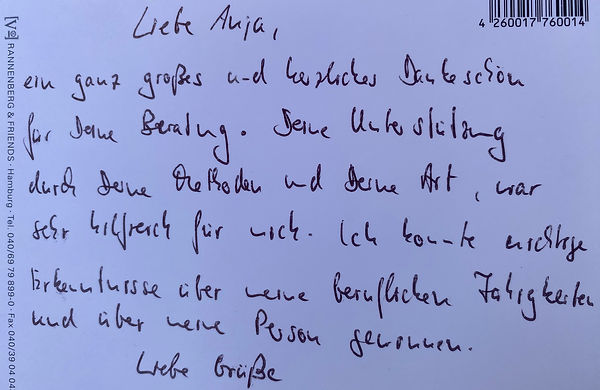 Liebe Anja,
ein ganz großes und herzliches Dankeschön
für Deine Beratung. Deine Unterstützung
durch Deine Methoden und Deine Art, war
sehr hilfreich für mich. Ich konnte wichtige
Erkenntnisse über meine beruflichen Fähigkeiten
und über meine Person gewonnen.
Liebe Grüße
4 260017 760014
RANNENBERG & FRIENDS · Hamburg · Tel. 040/69 79 899-0 · Fax 040/39 04 04